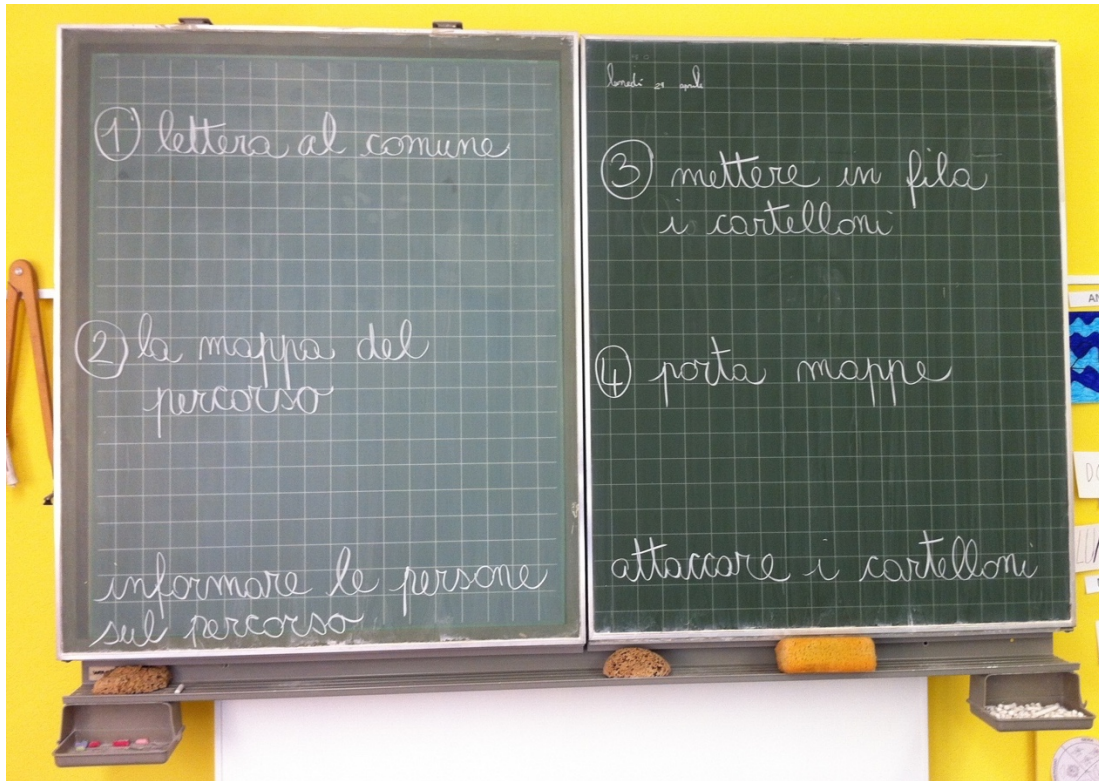 ① lettera al comune
② la mappa del
percorso
informare le persone
sul percorso
lunedì 29 aprile
③ mettere in fila
i cartelloni
④ porta mappe
attaccare i cartelloni
AN